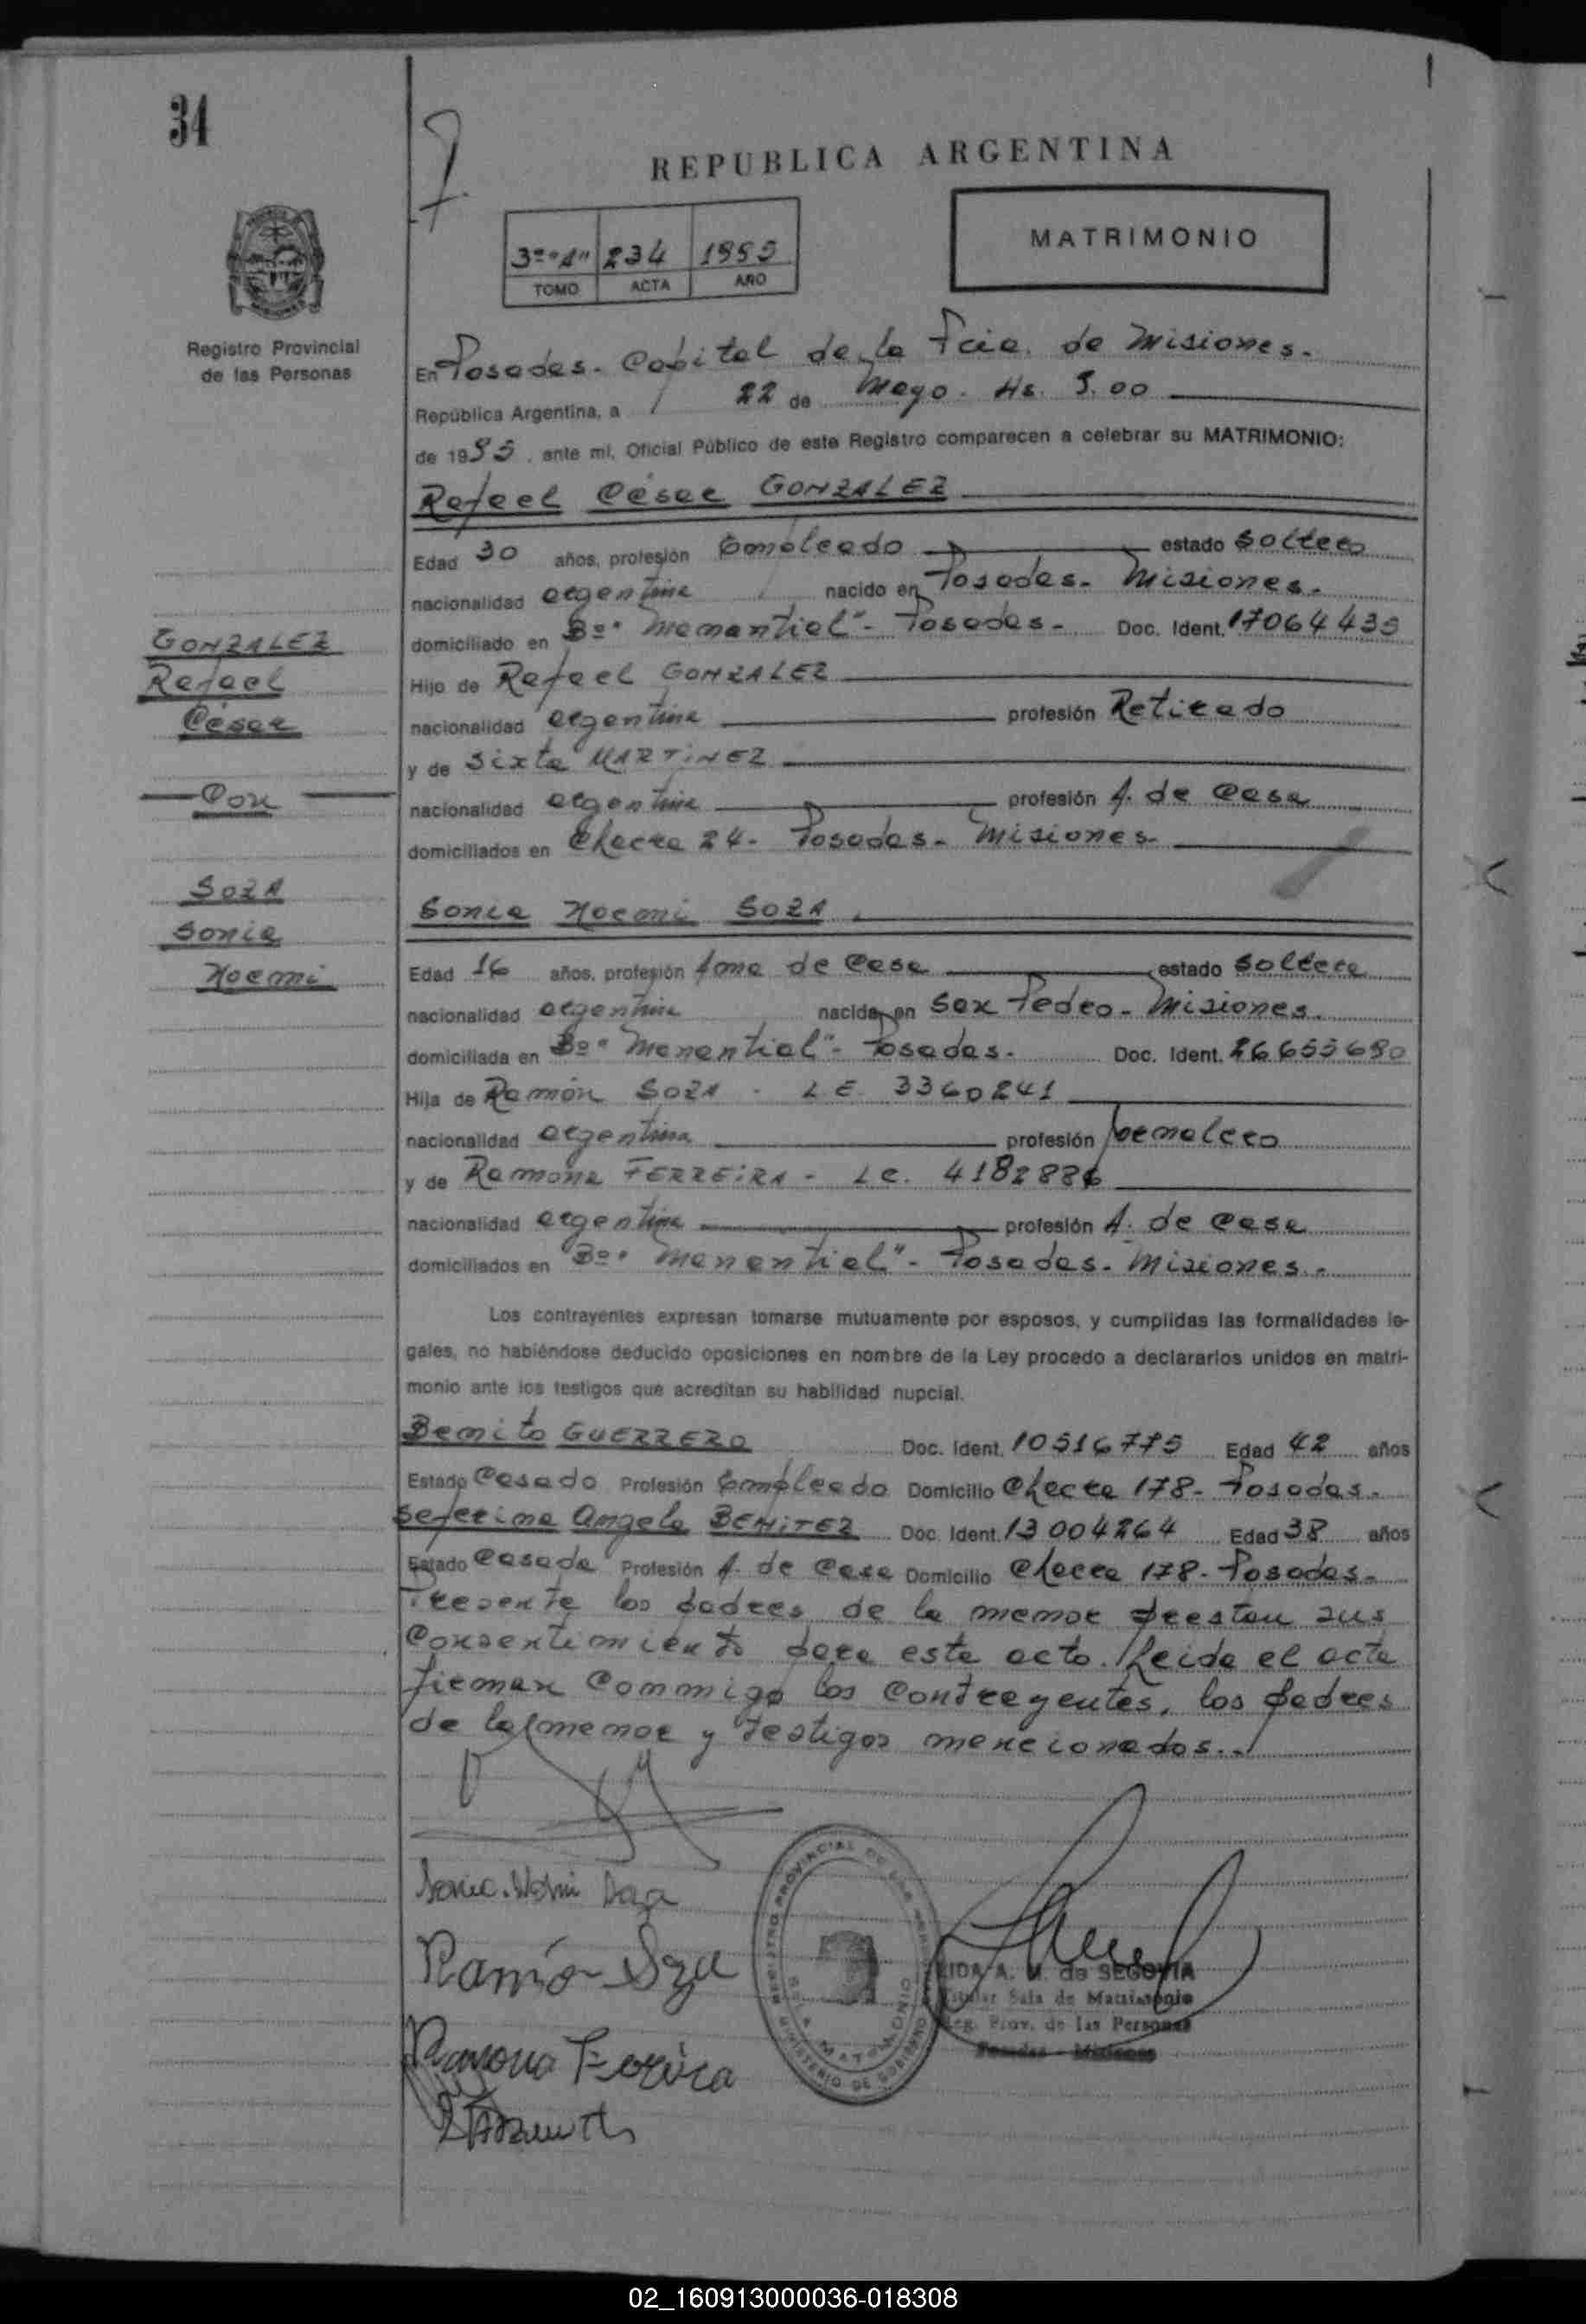 34
REPUBLICA ARGENTINA
3º "A" 234 1995
TOMO ACTA AÑO
MATRIMONIO
Registro Provincial
de las Personas
En Posadas. Capital de la Pcia. de Misiones.
República Argentina, a 22 de Mayo. Hs. 9.00
de 1995, ante mí, Oficial Público de este Registro comparecen a celebrar su MATRIMONIO:
Rafael César GONZALEZ
Edad 30 años, profesión Empleado estado soltero
nacionalidad argentina nacido en Posadas. Misiones.
domiciliado en Bº "Manantial" - Posadas - Doc. Ident. 17064439
Hijo de Rafael GONZALEZ
nacionalidad argentina profesión Retirado
y de Sixta MARTINEZ
nacionalidad argentina profesión A. de casa
domiciliados en Chacra 24 - Posadas - Misiones -
GONZALEZ
Rafael
César
Con
SOZA
Sonia
Noemi
Sonia Noemi SOZA
Edad 16 años, profesión Ama de Casa estado soltera
nacionalidad argentina nacida en San Pedro - Misiones.
domiciliada en Bº "Manantial" - Posadas. Doc. Ident. 26655690
Hija de Ramón SOZA - LE 3360241
nacionalidad argentina profesión Jornalero
y de Ramona FERREIRA - LC. 4182886
nacionalidad argentina profesión A. de casa
domiciliados en Bº "Manantial" - Posadas. Misiones.
Los contrayentes expresan tomarse mutuamente por esposos, y cumplidas las formalidades le-
gales, no habiéndose deducido oposiciones en nombre de la Ley procedo a declararlos unidos en matri-
monio ante los testigos que acreditan su habilidad nupcial.
Benito GUERRERO Doc. Ident. 10516775 Edad 42 años
Estado Casado Profesión Empleado Domicilio Chacra 178 - Posadas.
Seferina Angela BENITEZ Doc. Ident. 13004264 Edad 38 años
Estado Casada Profesión A. de Casa Domicilio Chacra 178 - Posadas.
Presente los padres de la menor prestan sus
Consentimiento para este acto. Leida el acta
firman conmigo los contrayentes, los padres
de la menor y testigos mencionados.
Sonia Noemi Soza
Ramón Soza
Ramona Ferreira
A. M. de SEGOVIA
Titular Sala de Matrimonio
Reg. Prov. de las Personas
Posadas - Misiones
REGISTRO PROVINCIAL DE LAS PERSONAS
MINISTERIO DE GOBIERNO
02_160913000036-018308